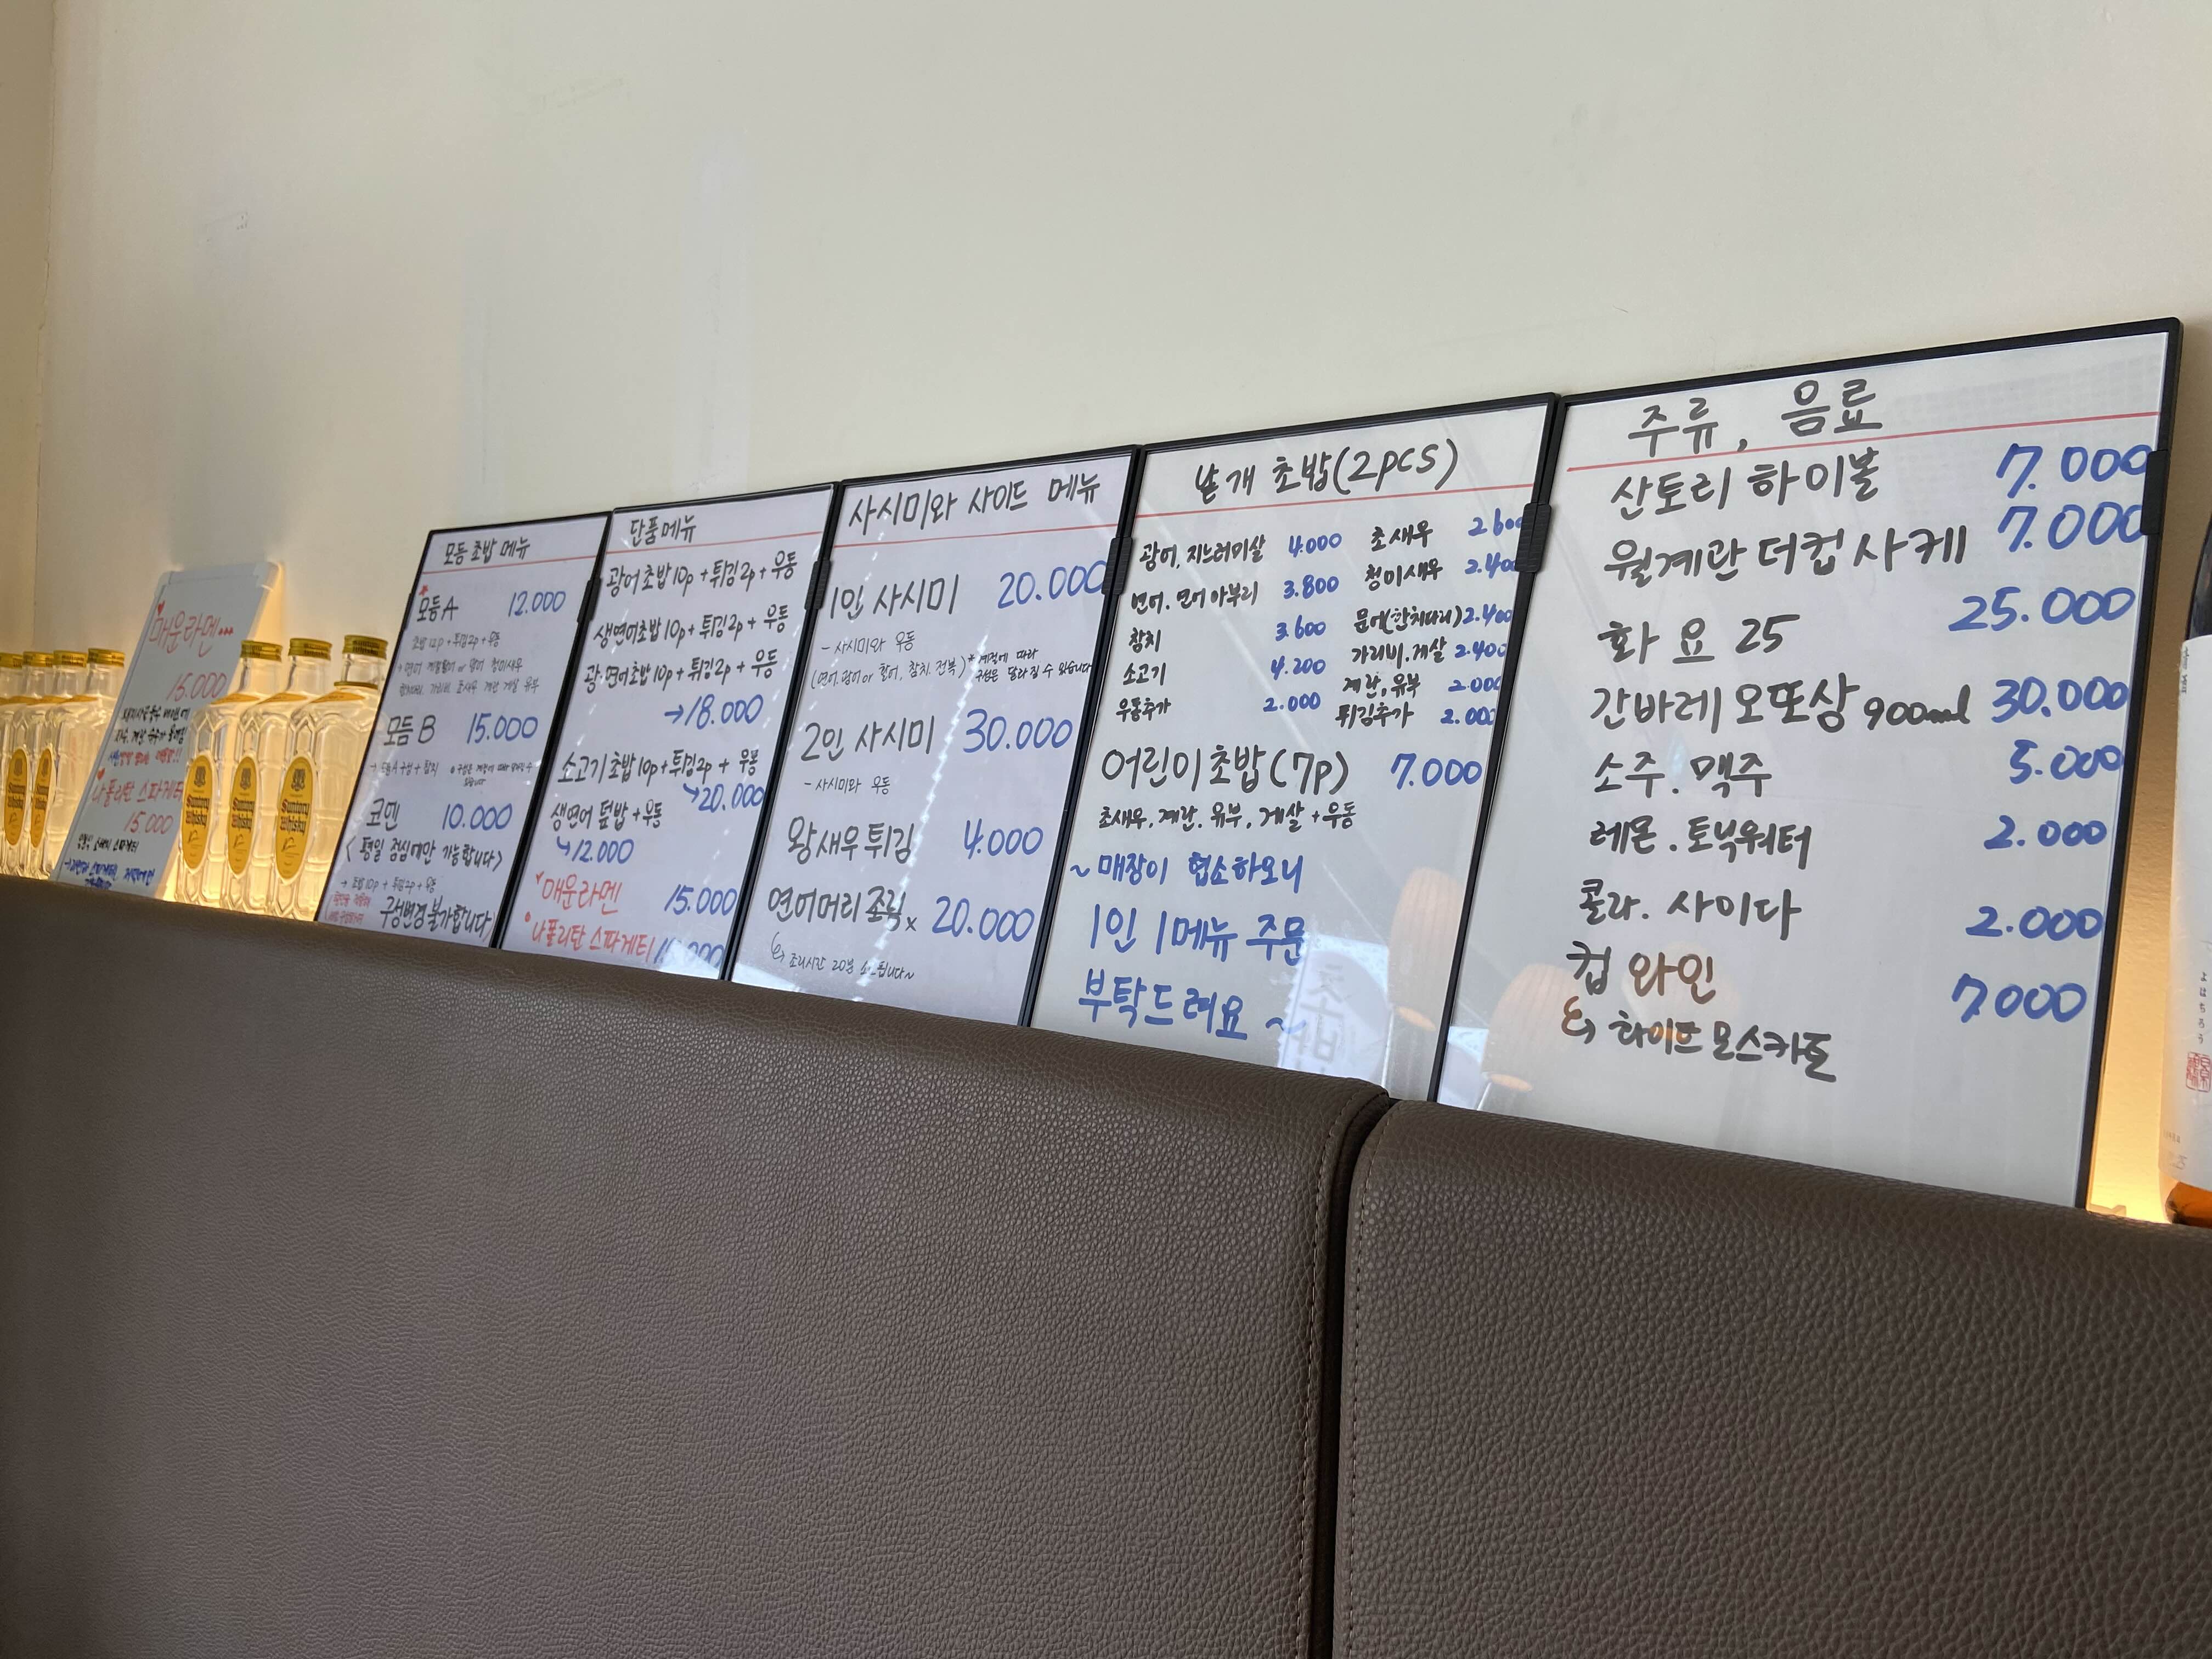 매운라멘...
15.000
나폴리탄 스파게티
15.000
Suntory
Whisky
모듬 초밥 메뉴
모듬 A 12.000
초밥 12p + 튀김2p + 우동
모듬 B 15.000
코멘 10.000
<평일 점심에만 가능합니다>
→ 초밥 10p + 튀김2p + 우동
구성변경 불가합니다)
단품메뉴
광어 초밥 10p + 튀김2p + 우동
생연어초밥 10p + 튀김2p + 우동
광·연어초밥 10p + 튀김2p + 우동
→18.000
소고기 초밥 10p + 튀김2p + 우동
→20.000
생연어 덮밥 + 우동
↳12.000
매운라멘 15.000
나폴리탄 스파게티
사시미와 사이드 메뉴
1인 사시미 20.000
- 사시미와 우동
(연어.광어 or 활어, 참치, 전복) * 계절에 따라
구성은 달라질 수 있습니다
2인 사시미 30.000
- 사시미와 우동
왕새우튀김 4.000
연어머리 조림 20.000
조리시간 20분 소요됩니다~
낱개 초밥(2pcs)
광어, 지느러미살 4.000 초새우 2.600
연어. 연어아부리 3.800 청미새우 2.400
참치 3.600 문어(한치다리) 2.400
소고기 4.200 가리비.게살 2.400
우동추가 2.000 계란, 유부 2.000
튀김추가 2.000
어린이초밥(7p) 7.000
초새우. 계란. 유부. 게살 + 우동
~ 매장이 협소하오니
1인 1메뉴 주문
부탁드려요 ~
주류, 음료
산토리 하이볼 7.000
월계관 더컵 사케 7.000
화요 25 25.000
간바레 오또상 900ml 30.000
소주. 맥주 5.000
레몬. 토닉워터 2.000
콜라. 사이다 2.000
컵 와인 7.000
하이트 모스카토